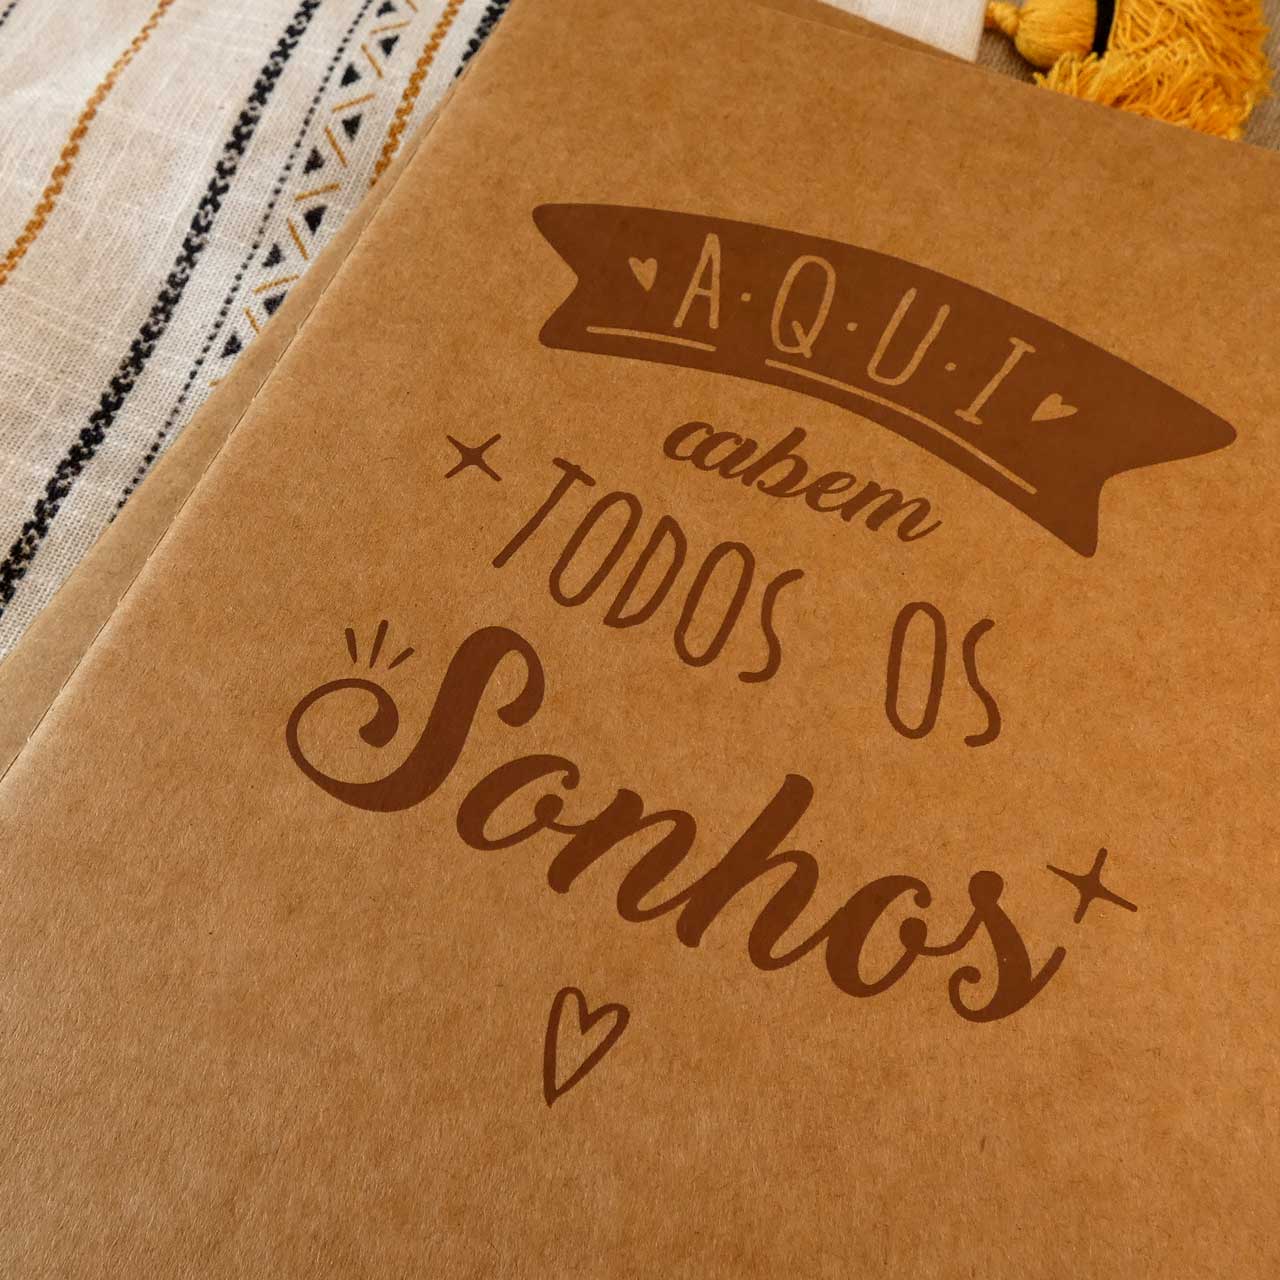 A·Q·U·I
cabem
TODOS OS
Sonhos